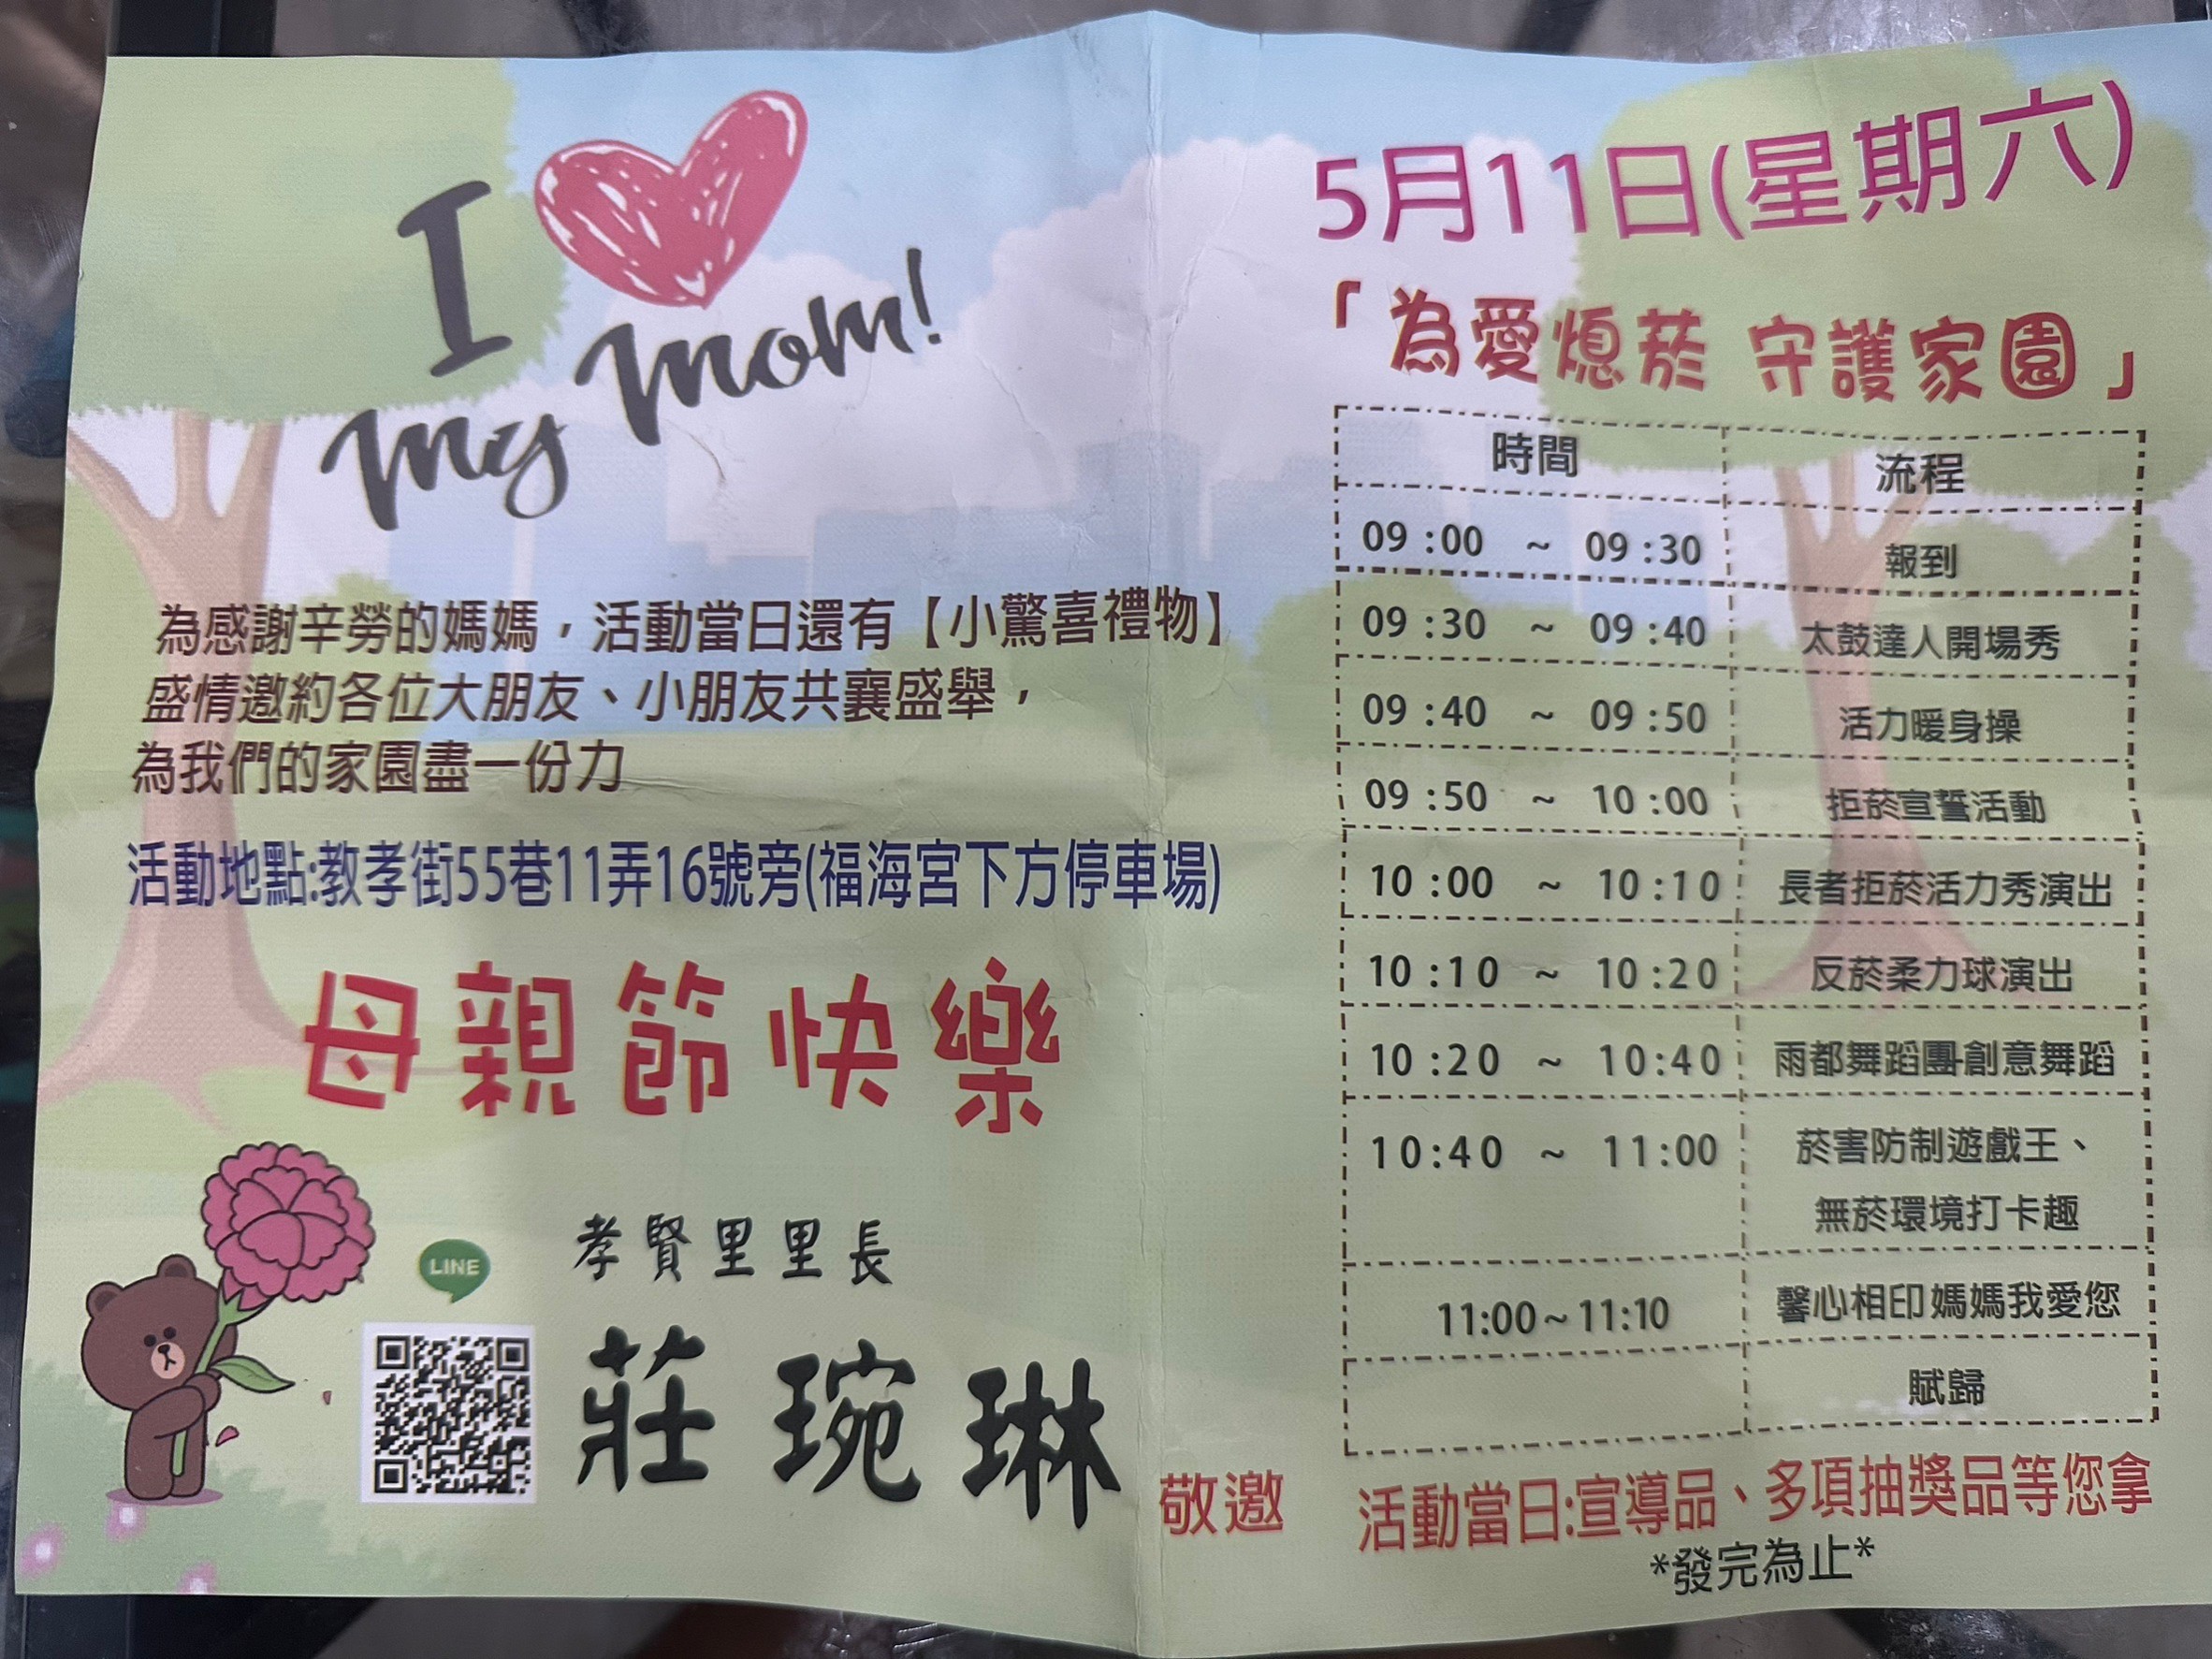 I
my mom!
為感謝辛勞的媽媽，活動當日還有【小驚喜禮物】
盛情邀約各位大朋友、小朋友共襄盛舉，
為我們的家園盡一份力
活動地點:教孝街55巷11弄16號旁(福海宮下方停車場)
母親節快樂
LINE
孝賢里里長
莊琬琳 敬邀
5月11日(星期六)
「為愛熄菸 守護家園」
時間 流程
09:00 ~ 09:30 報到
09:30 ~ 09:40 太鼓達人開場秀
09:40 ~ 09:50 活力暖身操
09:50 ~ 10:00 拒菸宣誓活動
10:00 ~ 10:10 長者拒菸活力秀演出
10:10 ~ 10:20 反菸柔力球演出
10:20 ~ 10:40 雨都舞蹈團-創意舞蹈
10:40 ~ 11:00 菸害防制遊戲王、
無菸環境打卡趣
11:00~11:10 馨心相印媽媽我愛您
賦歸
活動當日:宣導品、多項抽獎品等您拿
*發完為止*